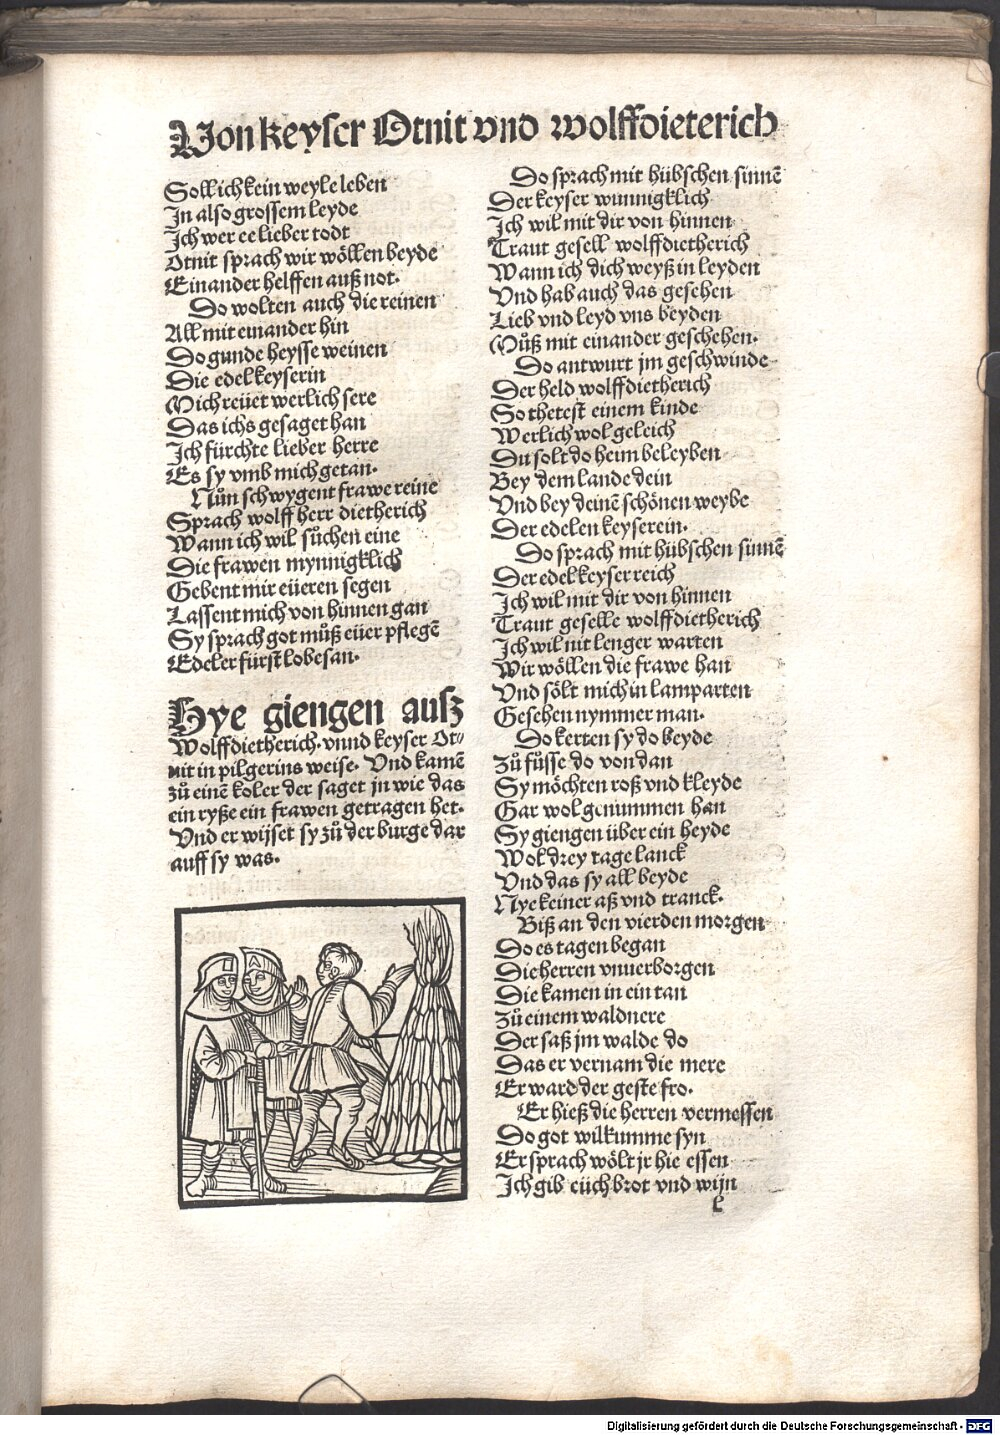 Von keyser Otnit vnd wolffdieterich
Soll ich kein weyle leben
In also grossem leyde
Ich wer ee lieber todt
Otnit sprach wir wöllen beyde
Einander helffen auß not.
Do wolten auch die reinen
All mit einander hin
Do gunde heysse weinen
Die edel keyserin
Mich reüet werlich sere
Das ichs gesaget han
Ich fürchte lieber herre
Es sy vmb mich getan.
Nůn schwygent frawe reine
Sprach wolff herr dietherich
Wann ich wil sůchen eine
Die frawen mynnigklich
Gebent mir eüeren segen
Lassent mich von hinnen gan
Sy sprach got můß eüer pflegē
Edeler fürst lobesan.
Hye giengen auß
Wolffdietherich. vnnd keyser Ot⸗
nit in pilgerins weise. Vnd kamē
zů einē koler der saget jn wie das
ein ryße ein frawen getragen het.
Vnd er wijset sy zů der burge dar
auff sy was.
Do sprach mit hübschen sinnē
Der keyser wunnigklich
Ich wil mit dir von hinnen
Traut gesell wolffdietherich
Wann ich dich weyß in leyden
Vnd hab auch das gesehen
Lieb vnd leyd vns beyden
Můß mit einander geschehen.
Do antwurt jm geschwinde
Der held wolffdietherich
So thetest einem kinde
Werlich wol geleich
Du solt do heim beleyben
Bey dem lande dein
Vnd bey deinē schönen weybe
Der edelen keyserein.
Do sprach mit hübschen sinnē
Der edel keyser reich
Ich wil mit dir von hinnen
Traut geselle wolffdietherich
Ich wil nit lenger warten
Wir wöllen die frawe han
Vnd sölt mich in lamparten
Gesehen nymmer man.
Do kerten sy do beyde
Zů fůsse do von dan
Sy möchten roß vnd kleyde
Gar wol genummen han
Sy giengen über ein heyde
Wol drey tage lanck
Vnd das sy all beyde
Nye keiner aß vnd tranck.
Biß an den vierden morgen
Do es tagen began
Die herren vnuerborgen
Die kamen in ein tan
Zů einem waldnere
Der saß jm walde do
Das er vernam die mere
Er ward der geste fro.
Er hieß die herren vermessen
Do got wilkumme syn
Er sprach wölt jr hie essen
Ich gib eüch brot vnd wijn
l
A
Digitalisierung gefördert durch die Deutsche Forschungsgemeinschaft - DFG